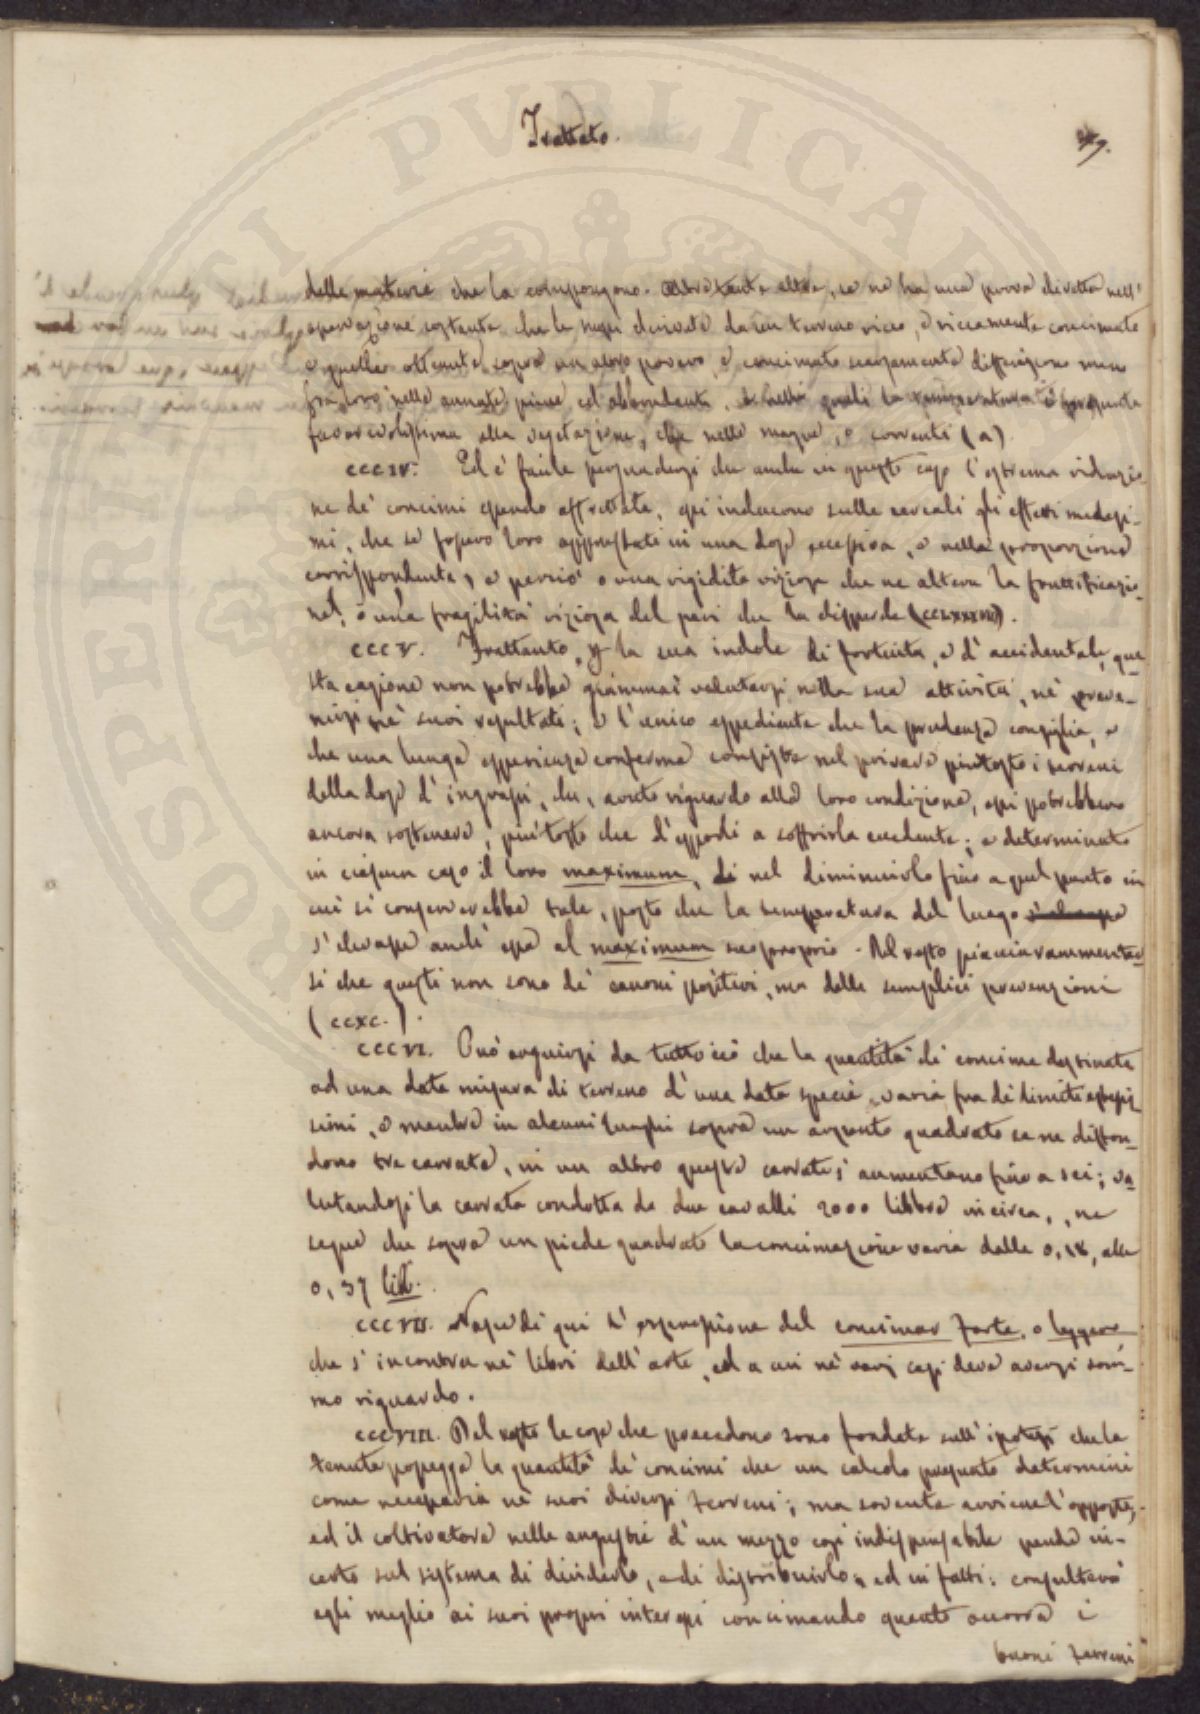 Trattato.
79.
delle materie che la compongono. Oltre tante altre, se ne ha una prova diretta nell'
operazione costante che le messi derivate da un terreno ricco, e riccamente concimato
e quelle ottenute sopra un altro povero e concimato scarsamente differiscono meno
fra loro nelle annate piene ed abbondanti, e nelle quali la temperatura è
favorevolissima alla vegetazione, che nelle magre, o correnti (a)
CCCIV. Ed è facile persuadersi che anche in questo caso l'estrema riduzio-
ne de' concimi quando affrettata, qui inducono sulle cereali gli effetti medesi-
mi, che se fossero loro apprestati in una dose eccessiva, e nella proporzione
corrispondente, e perciò o una rigidità viziosa che ne altera la fruttificazio-
ne, o una fragilità viziosa del pari che la disperde
CCCV. Frattanto, per la sua indole di fortuita, e d'accidentale, que-
sta cagione non potrebbe giammai valutarsi nella sua attività, nè preve-
nirsi ne' suoi resultati; e l'unico espediente che la prudenza consiglia, e
che una lunga esperienza conferma consiste nel privare piuttosto i terreni
della dose d'ingrassi, che, avuto riguardo alla loro condizione, essi potrebbero
ancora sostenere, piuttosto che d'esporli a soffrirla eccedente; e determinato
in ciascun caso il loro maximum, di nel diminuirlo fino a quel punto in
cui si conserverebbe tale, posto che la temperatura del luogo
s'elevasse anch'essa al maximum suo proprio. Del resto piaccia rammentar-
si che questi non sono de' canoni positivi, ma delle semplici prevenzioni
(CCXC.).
CCCVI. Può arguirsi da tutto ciò che la quantità di concime destinata
ad una data misura di terreno d'una data specie, varia fra di limiti estesis-
simi, e mentre in alcuni luoghi sopra un arpento quadrato se ne diffon-
dono tre carrate, in un altro queste carrate s'aumentano fino a sei; va-
lutandosi la carrata condotta da due cavalli 2000 libbre incirca, ne
segue che sopra un piede quadrato la concimazione varia dalle 0,18, alle
0,37 libb.
CCCVII. Nasce di qui l'espressione del concimar forte, o leggero
che s'incontra ne' libri dell'arte, ed a cui ne' varj casi deve aversi som-
mo riguardo.
CCCVIII. Del resto le cose che precedono sono fondate sull'ipotesi che la
tenuta possegga la quantità de' concimi che un calcolo pesquato determini
come necessaria ne' suoi diversi terreni; ma sovente avviene l'opposto,
ed il coltivatore nelle angustie d'un mezzo così indispensabile pende in-
certo sul sistema di dividerlo, e di distribuirlo, ed in fatti: consulterà
egli meglio ai suoi proprj interessi concimando quanto occorra i
buoni terreni